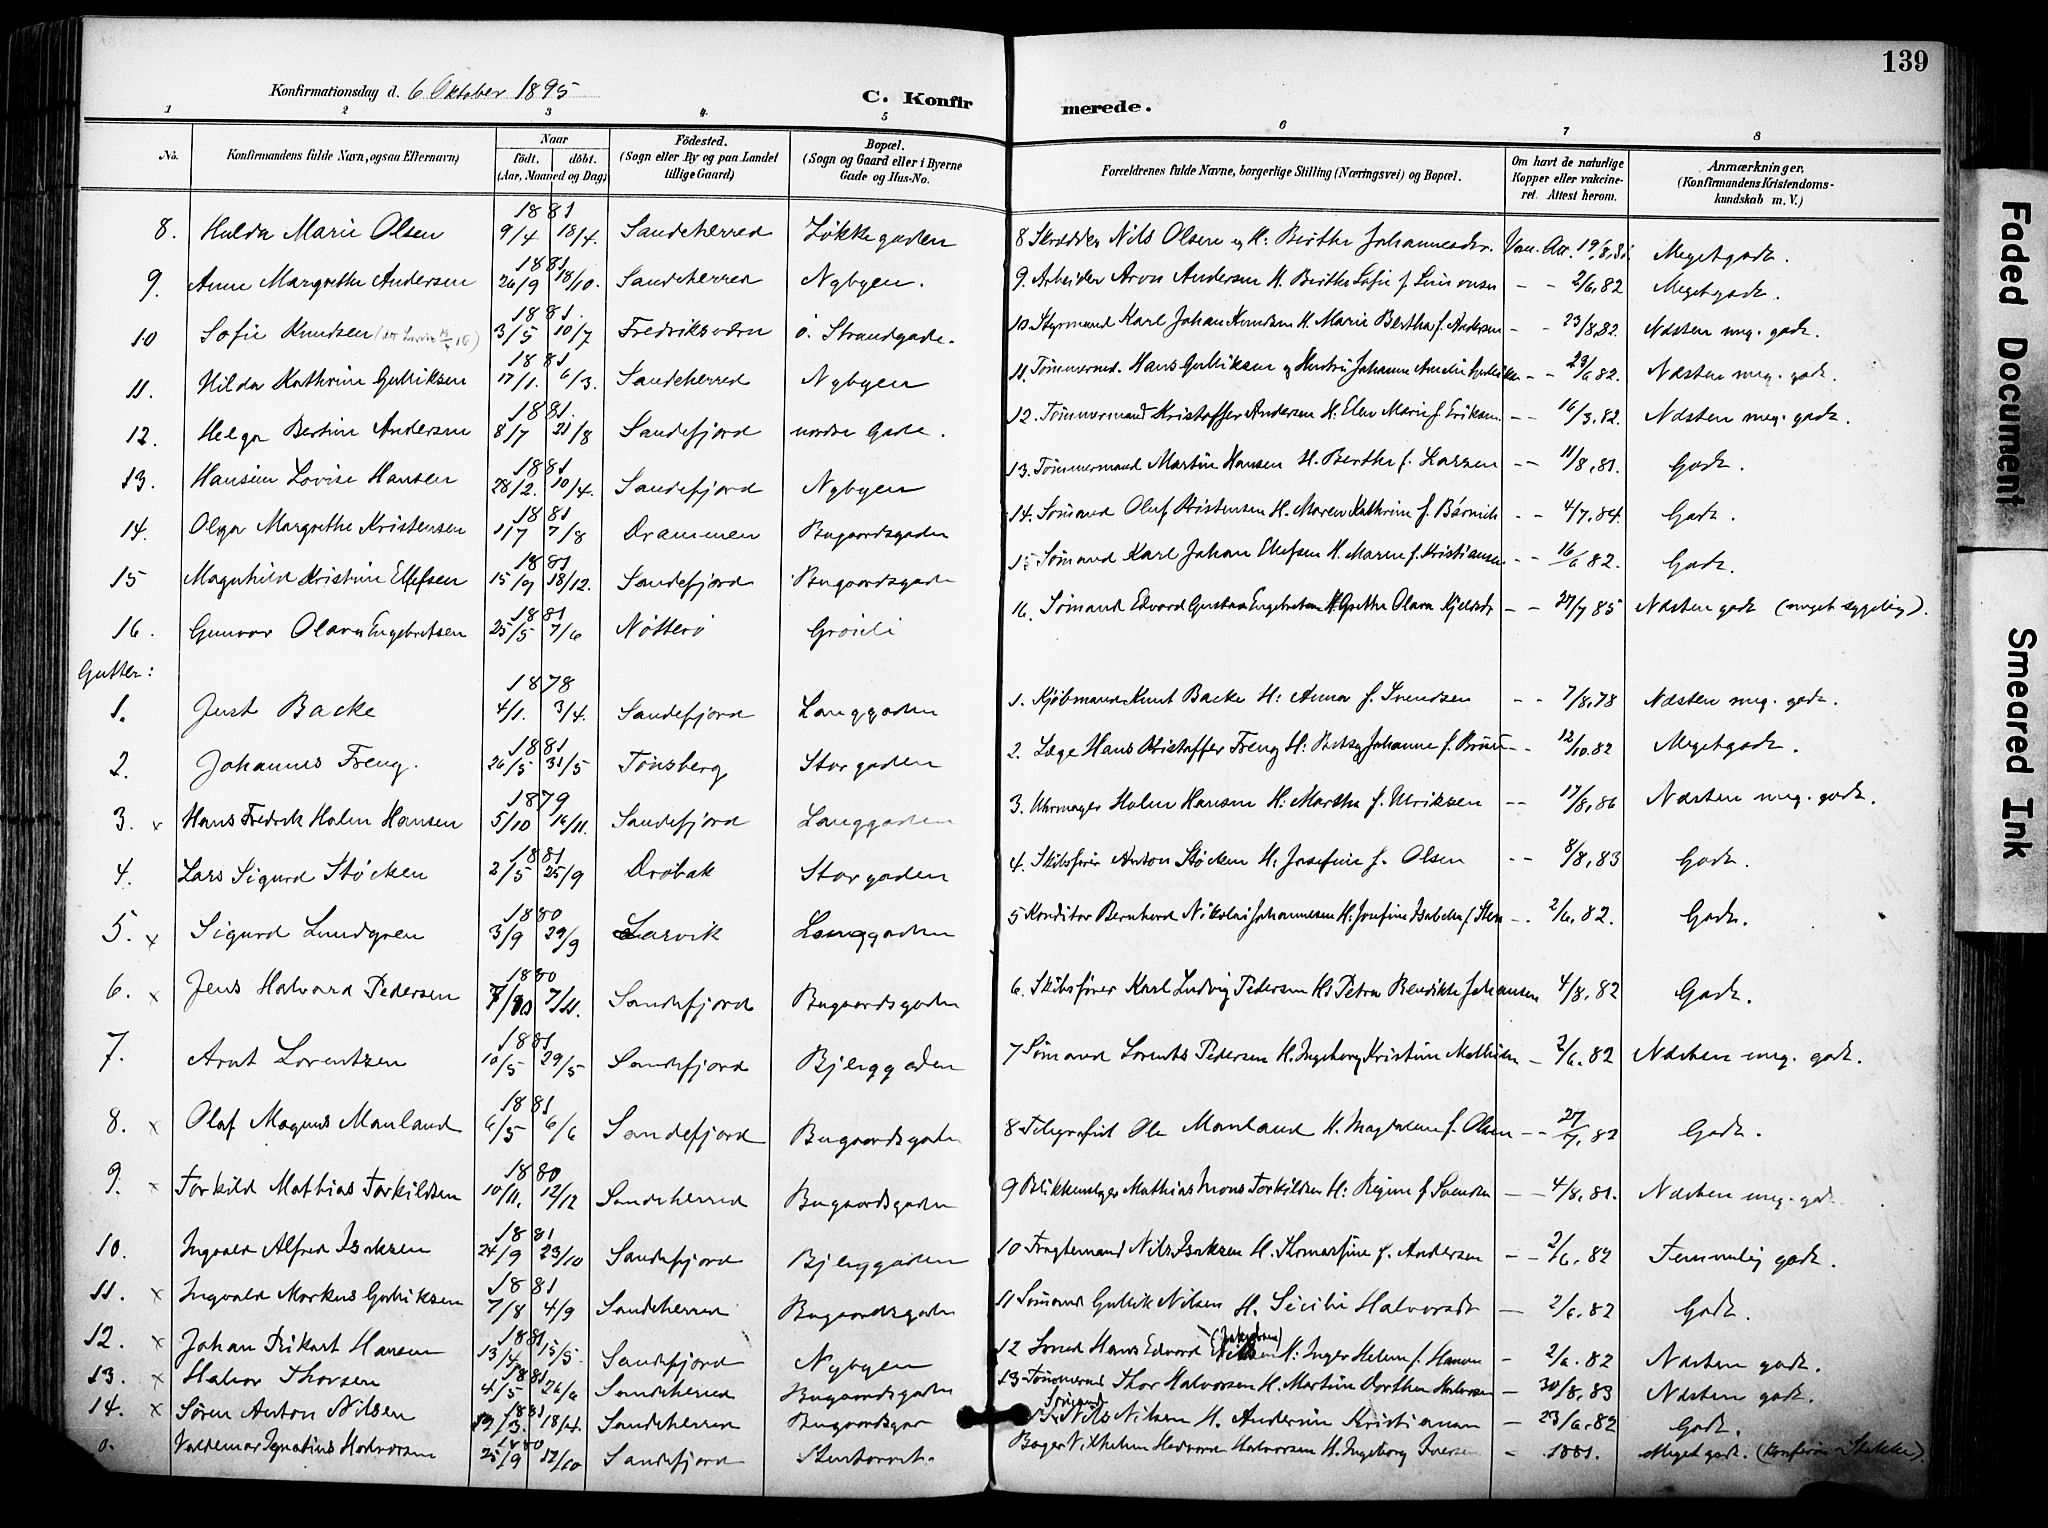 139
Konfirmationsdag d. 6 Oktober 1895
C. Konfirmerede.
1 2 3 4 5 6 7 8
No. Konfirmandens fulde Navn, ogsaa Efternavn) Naar født. døbt. (Aar, Maaned og Dag) Fødested. (Sogn eller By og paa Landet tillige Gaard) Bopæl. (Sogn og Gaard eller i Byerne Gade og Hus-No. Forældrenes fulde Navne, borgerlige Stilling (Næringsvei) og Bopæl. Om havt de naturlige Kopper eller vakcineret. Attest herom. Anmærkninger. (Konfirmandens Kristendomskundskab m. V.)
8. Hulda Marie Olsen 1881 9/4 18/4. Sandeherred Løkkegaden 8 Skrædder Nils Olsen og H. Berthe Johannesdr. Vac. Att. 19/6,81 Megetgodt.
9. Anne Margrethe Andersen 1881 26/9 18/10. Sandeherred Nybyen. 9. Arbeider Aron Andersen H. Berthe Sofie f. Simonsen - - 2/6,82 Megetgodt.
10 Sofie Knudsen 1881. 3/5 10/7 Fredriksværn ö. Strandgade. 10 Styrmand Karl Johan Knudsen H. Marie Bertha f. Andersen - - 23/8,82. Næsten meg. godt.
11. Hilda Kathrine Gulliksen 1881 17/1. 6/3. Sandeherred Nybyen 11. Tømmermd. Hans Gulliksen og Hustru Johanne Amalie Gulliksen - - 23/6 82. Næsten meg. godt.
12. Helga Bertine Andersen 1881. 8/7 21/8 Sandefjord nordre Gade. 12. Tømmermand Kristoffer Andersen H. Elen Marie f. Eriksen - - 16/3,82. Næsten meg. godt.
13. Hansine Lovise Hansen 1881 28/2. 10/4. Sandefjord Nybyen 13. Tømmermand Martin Hansen H. Berthe f. Larsen - - 11/8,81. Godt.
14. Olga Margrethe Kristensen 1881 1/7 7/8 Drammen Bugaardsgaden 14. Sømand Oluf Kristensen H. Maren Kathrine f. - - 4/7,84. Godt.
15 Magnhild Kristine Ellefsen 1881 15/9 18/12. Sandefjord Bugaardsgade 15 Sømand Karl Johan Ellefsen H. Maren f. Kristiansen - - 16/6 82. Godt.
16. Gunvor Olava Engebretsen 1881 25/5 7/6 Nøtterö 16. Sømand Edvard Gustav Engebretsen H. Grethe Olava - - 27/7 85 Næsten godt (meget sygelig).
Gutter:
1. Just Backe 1878 4/1. 3/4. Sandefjord Langgaden 1. Kjøbmand Knut Backe H: Anna f. Svendsen - - 7/8,78 Næsten meg. godt.
2. Johannes Freng. 1881 26/5 31/5 Tønsberg Storgaden 2. Læge Hans Kristoffer Freng H: Betsy Johanne f. Bruun - - 12/10.82 Megetgodt.
3. x Hans Fredrik Holm Hansen 1879 5/10 16/11. Sandefjord Langgaden 3. Uhrmager Holm Hansen H: Martha f. Ulriksen - - 17/8,86 Næsten meg. godt.
4. Lars Sigurd Støcken 1881 2/5 25/9 Drøbak Storgaden 4. Skibsfører Anton Støcken H. Josefine f. Olsen - - 8/8,83 Godt.
5. x Sigurd Lundgren 1880 3/9 29/9 Larvik Langgaden 5 Konditor Bernhard Nikolai Johannesen H: Josefine Isabella f. - . 2/6.82. Godt.
6. x Jens Halvard Pedersen 1880 7/10 7/11. Sandefjord Bugaardsgaden 6. Skibsfører Karl Ludvig Pedersen H: Petra Bendikte Johansen 4/8,82 Godt.
7. Arnt Lorentzen 1881 10/5 29/5 Sandefjord Bjerggaden 7 Sømand Lorents Pedersen H. Ingeborg Kristine Mathisen - 2/6.82 Næsten meg. godt.
8. x Olaf Magnus Manland 1881 6/5 6/6 Sandefjord Bugaardsgaden 8 Telegrafist Ole Manland H. Magdalene f. Olsen - - 27/7,82 Godt.
9. x Torkild Mathias Torkildsen 1880 10/11. 12/12 Sandeherred Bugaardsgaden 9 Blikkenslager Mathias Mons Torkildsen H: Regine f. Svendsen - - 4/8,81. Næsten meg. godt
10. Ingvald Alfred Isaksen 1881 24/9 23/10 Sandefjord Bjerggaden 10 Fragtemand Nils Isaksen H. Thomasine f. Andersen - - 2/6.82 Temmelig godt.
11. x Ingvald Markus Gulliksen 1881 7/8 4/9 Sandeherred Bugaardsgaden 11 Sømand Gullik Nilsen H. Sicilie Halvorsdr - 2/6.82 Godt.
12. x Johan Rikart Hansen 1881 13/4 15/5. Sandefjord Nybyen 12 Sømd Hans Edvard Nilsen H: Inger Helene f. Hansen - 2/6.82 Næsten godt.
13. x Halvor Thorsen 1881 4/5 26/6 Sandeherred Bugaardsgaden 13 Tømmermd Thor Halvorsen H. Martine Dorthea Halvorsen - 30/8,83 Næsten godt.
14. x Søren Anton Nilsen 1881 19/3. 18/4. Sandeherred Bugaardsgad Sømand Nils Nilsen H. Andrine Kristiansen - 23/6,82 Godt.
o. Valdemar Ignatius Halvorsen 1880 25/9 17/10 Sandefjord Stentorvet. Bager Vilhelm Hedvard Halvorsen H. Ingeborg Iversen - 1881. Meget godt. (Konfirm i Stokke).
Faded Document
Smeared Ink